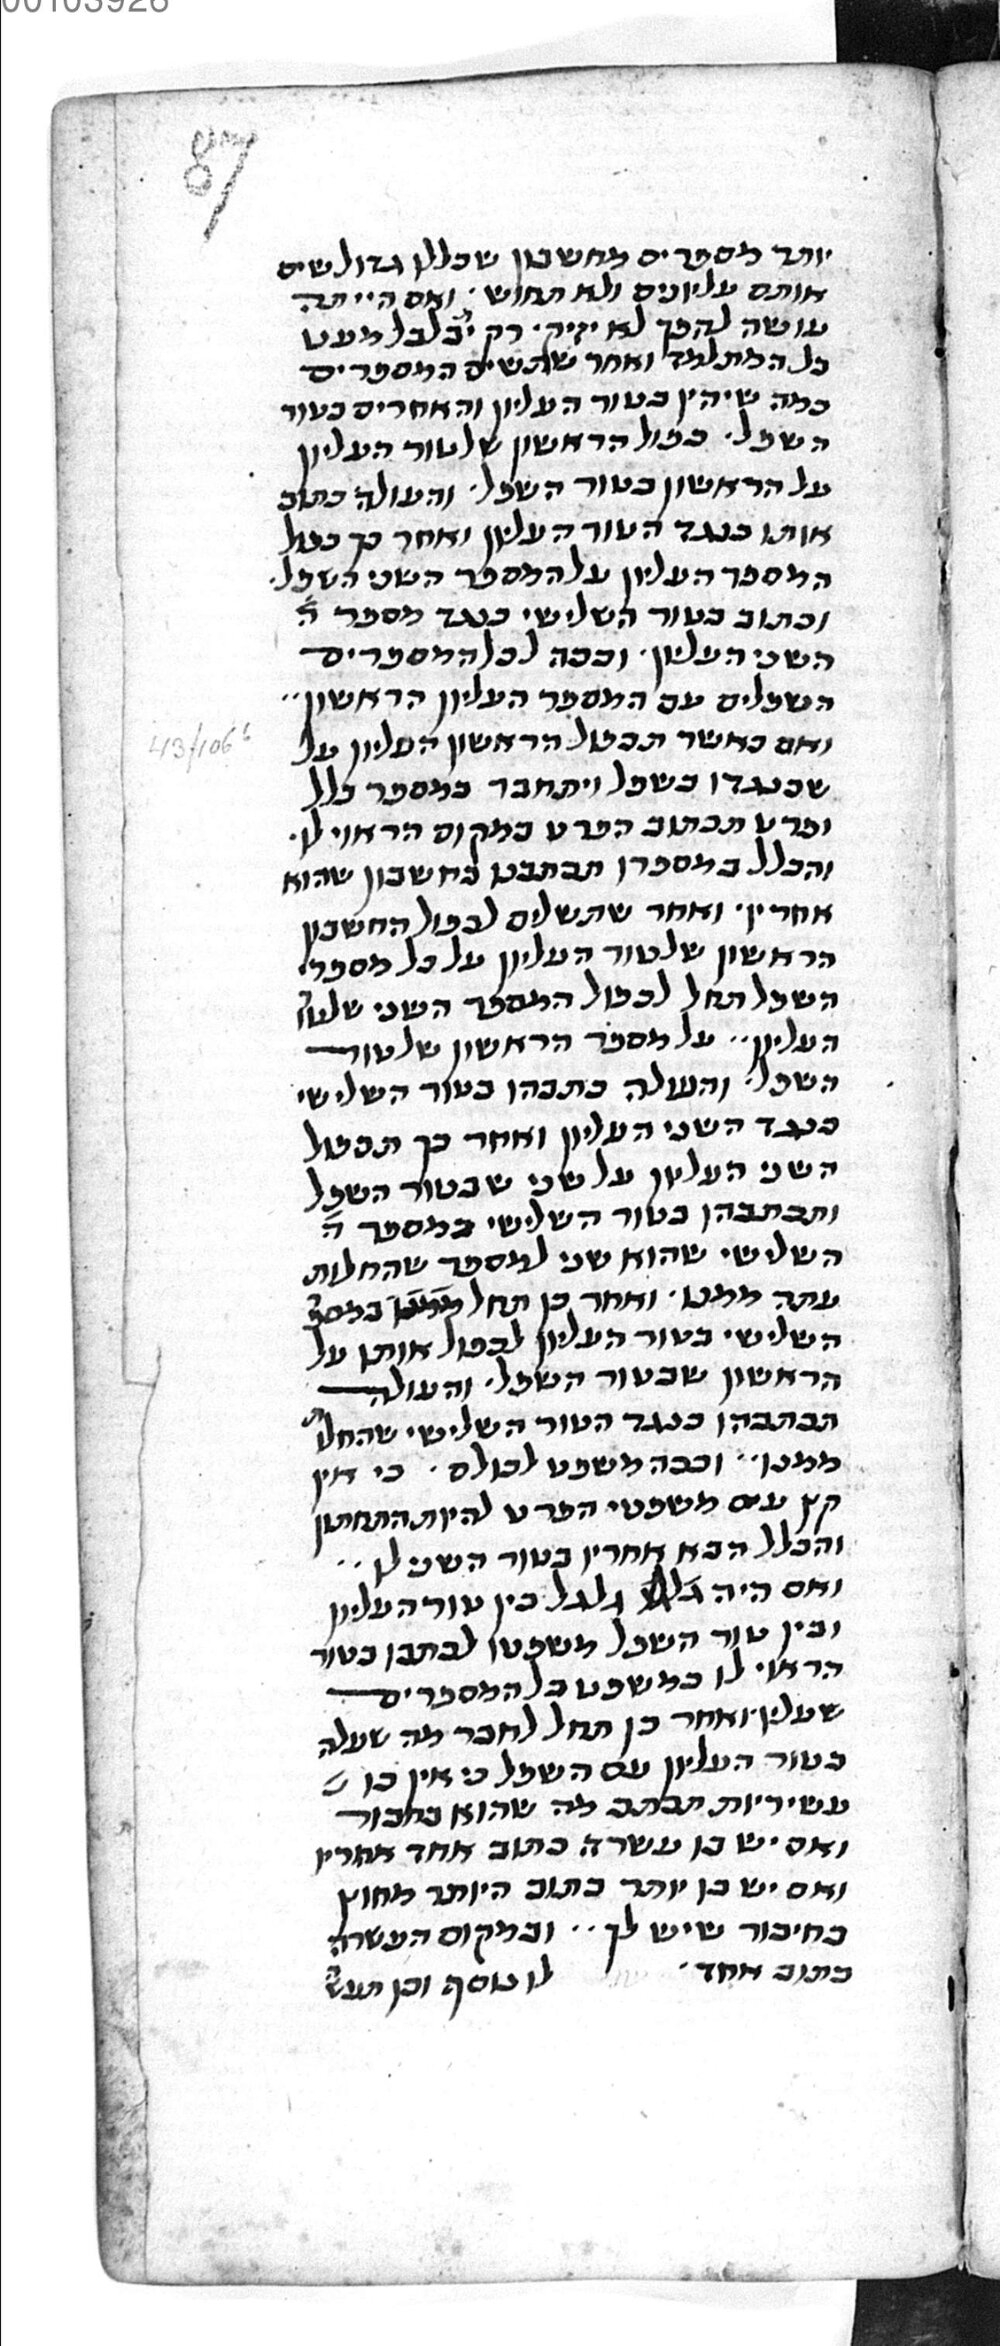 00103926
87
יותר מספרים מחשבון שכללו גדול שים
אותם עליונים ולא תחוש · ואם היית
עושה להפך לא יזיק · רק יבלבל מעט
כל המתלמד ואחר שתשים המספרים
כמה שיהיו בטור העליון והאחרים בטור
השפל · כפול הראשון שלטור העליון
על הראשון בטור השפל · והעולה כתוב
אותו כנגד הטור העליון ואחר כך כפול
המספר העליון על המספר השני השפל ·
וכתוב בטור השלישי כנגד מספר ה
השני העליון · וככה לכל המספרים
השפלים עם המספר העליון הראשון ··
ואם כאשר תכפול הראשון העליון על
שכנגדו בשפל ויתחבר במספר כלל
ופרט תכתוב הפרט במקום הראוי לו ·
והכלל במספרו תכתבנו בחשבון שהוא
אחריו · ואחר שתשלים לכפול החשבון
הראשון שלטור העליון על כל מספרי
השפל תחל לכפול המספר השני שלטו'
העליון ·· על מספר הראשון שלטור
השפל · והעולה כתבהו בטור השלישי
כנגד השני העליון ואחר כך תכפול
השני העליון על שני שבטור השפל
ותכתבהו בטור השלישי במספר ה
השלישי שהוא שני למספר שהחלות
עתה ממנו · ואחר כן תחל במספ'
השלישי בטור העליון לכפול אותו על
הראשון שבטור השפל · והעולה
תכתבהו כנגד הטור השלישי שהחלות
ממנו ·· וככה משפט לכולם · כי אין
קץ עם משפטי הפרט להיות התחתון
והכלל הבא אחריו בטור השני לו ··
ואם היה גלגל בין טור העליון
ובין טור השפל משפטו לכתבו בטור
הראוי לו כמשפט כל המספרים
שעליו · ואחר כן תחל לחבר מה שעלה
בטור העליון עם השפל כי אין בו
עשיריות תכתב מה שהוא בחבור
ואם יש בו עשרה כתוב אחד אחריו
ואם יש בו יותר כתוב היותר מחוץ
בחיבור שיש לך ·· ובמקום העשרה
כתוב אחד · לו נוסף וכן תעש'
43/106b